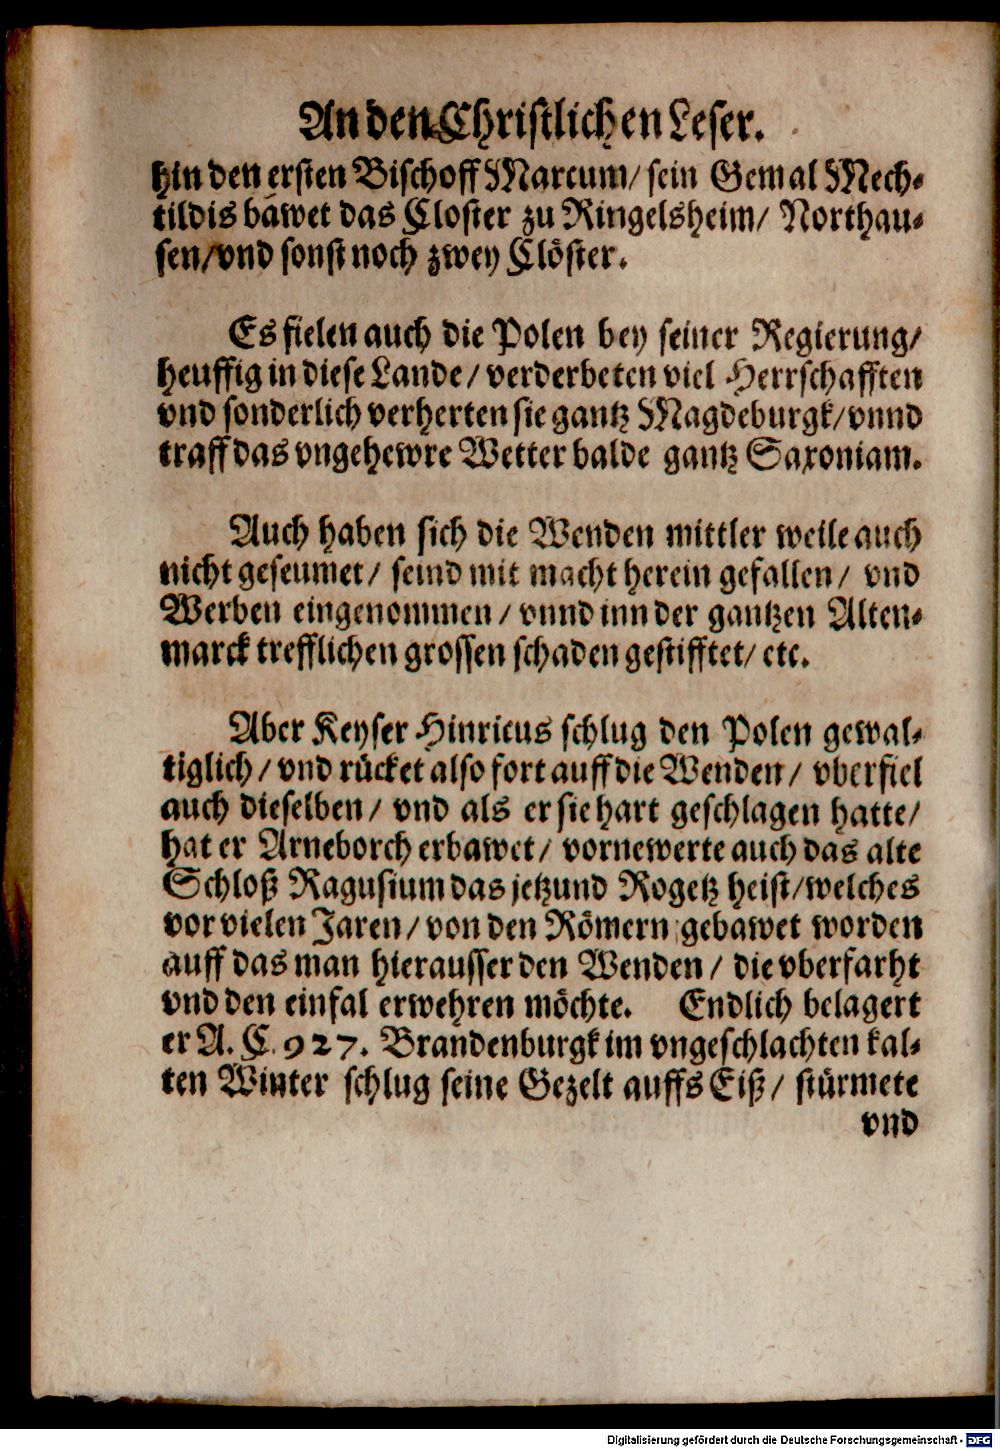 An den Christlichen Leser.
hin den ersten Bischoff Marcum/ sein Gemal Mech-
tildis bawet das Closter zu Ringelsheim/ Northau-
sen/vnd sonst noch zwey Clöster.
Es fielen auch die Polen bey seiner Regierung/
heuffig in diese Lande/ verderbeten viel Herrschafften
vnd sonderlich verherten sie gantz Magdeburgk/vnnd
traff das vngehewre Wetter balde gantz Saxoniam.
Auch haben sich die Wenden mittler weile auch
nicht geseumet/ seind mit macht herein gefallen/ vnd
Werben eingenommen/ vnnd inn der gantzen Alten-
marck trefflichen grossen schaden gestifftet/ etc.
Aber Keyser Hinricus schlug den Polen gewal-
tiglich/ vnd rücket also fort auff die Wenden/ vberfiel
auch dieselben/ vnd als er sie hart geschlagen hatte/
hat er Arneborch erbawet/ vornewerte auch das alte
Schloß Ragusium das jetzund Rogetz heist/welches
vor vielen Jaren/ von den Römern gebawet worden
auff das man hierausser den Wenden/ die vberfarht
vnd den einfal erwehren möchte. Endlich belagert
er A. C. 927. Brandenburgk im vngeschlachten kal-
ten Winter schlug seine Gezelt auffs Eiß/ stürmete
vnd
Digitalisierung gefördert durch die Deutsche Forschungsgemeinschaft - DFG